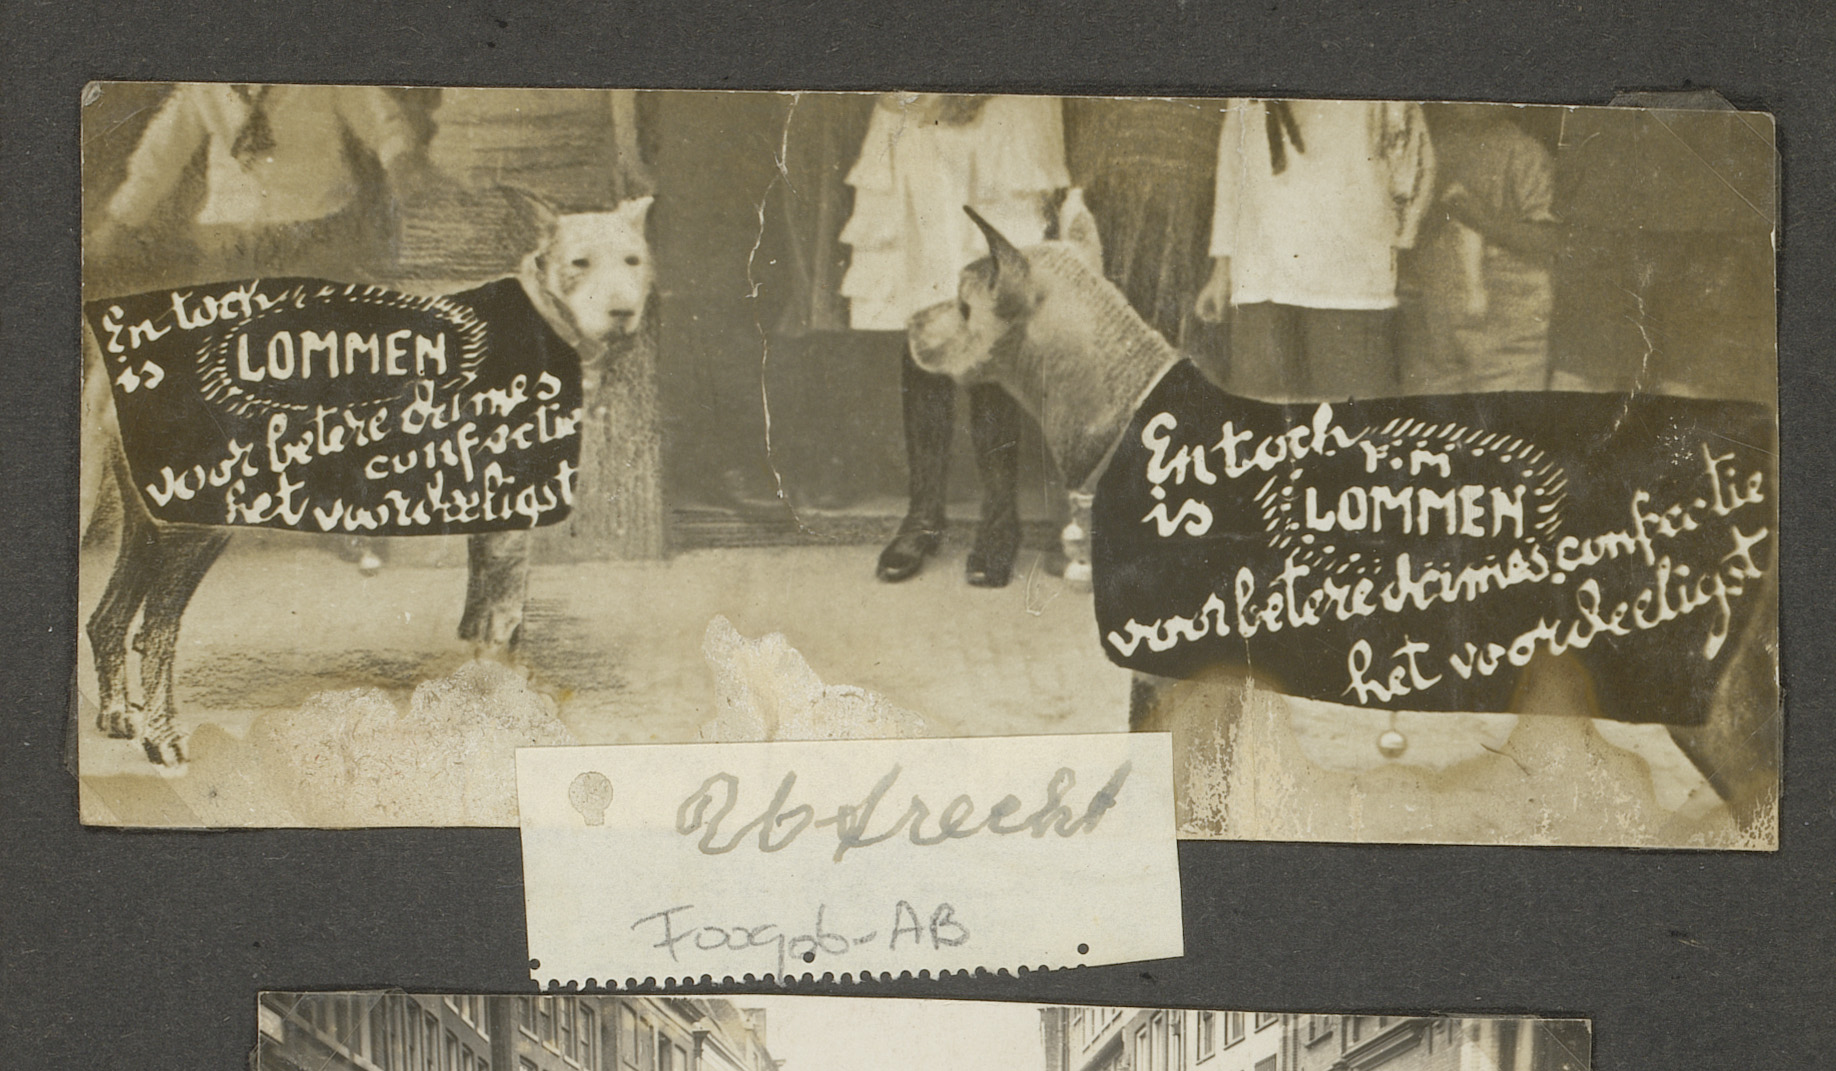 En toch
is LOMMEN
voor betere dames
confectie
het voordeeligst
En toch
is F.M
LOMMEN
voor betere dames confectie
het voordeeligst
Utrecht
F00906-AB